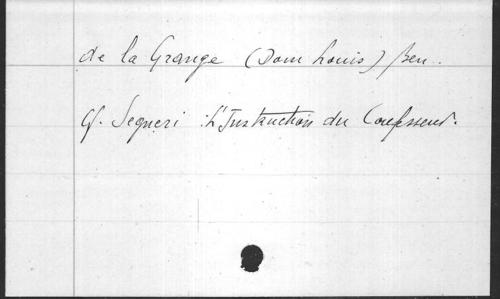 de la Grange (Dom Louis) Ben.
Cf. Segneri : L'Instruction du Confesseur.